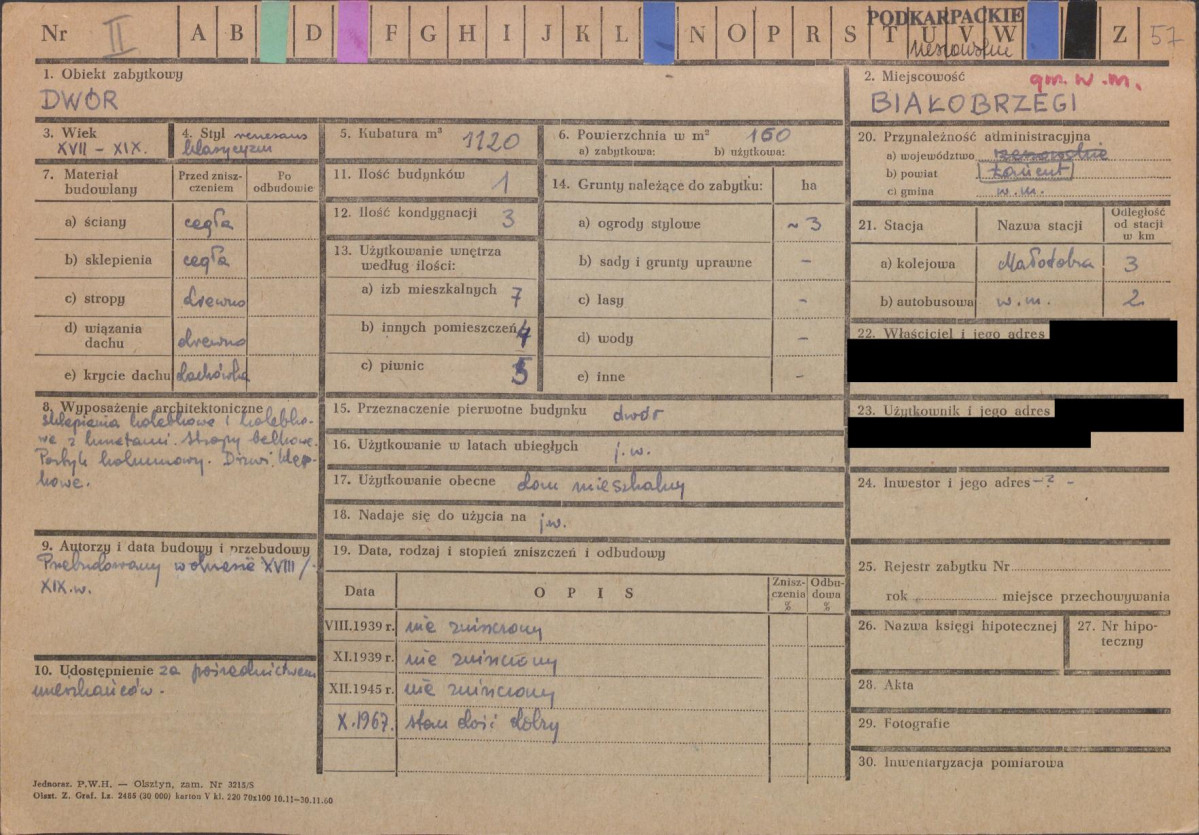 Nr II A B D F G H I J K L N O P R S T U V W Z 57
PODKARPACKIE
rzeszowskie
1. Obiekt zabytkowy
DWÓR
2. Miejscowość gm. w.m.
BIAŁOBRZEGI
3. Wiek
XVII – XIX.
4. Styl renesans
klasycyzm
5. Kubatura m³ 1120
6. Powierzchnia w m² 160
a) zabytkowa: b) użytkowa:
7. Materiał budowlany
Przed zniszczeniem
Po odbudowie
a) ściany cegła
b) sklepienia cegła
c) stropy drewno
d) wiązania dachu drewno
e) krycie dachu dachówka
8. Wyposażenie architektoniczne
sklepienia kolebkowe i kolebko-
we z lunetami. Stropy belkowe.
Portyk kolumnowy. Drzwi klep-
kowe.
9. Autorzy i data budowy i przebudowy
Przebudowany w okresie XVIII/
XIX.w.
10. Udostępnienie za pośrednictwem
mieszkańców.
11. Ilość budynków 1
12. Ilość kondygnacji 3
13. Użytkowanie wnętrza
według ilości:
a) izb mieszkalnych 7
b) innych pomieszczeń 4
c) piwnic 5
14. Grunty należące do zabytku: ha
a) ogrody stylowe ~ 3
b) sady i grunty uprawne –
c) lasy –
d) wody –
e) inne –
15. Przeznaczenie pierwotne budynku dwór
16. Użytkowanie w latach ubiegłych j.w.
17. Użytkowanie obecne dom mieszkalny
18. Nadaje się do użycia na jw.
19. Data, rodzaj i stopień zniszczeń i odbudowy
Data OPIS Zniszczenia % Odbudowa %
VIII.1939 r. nie zniszczony
XI.1939 r. nie zniszczony
XII.1945 r. nie zniszczony
X.1967. stan dość dobry
20. Przynależność administracyjna
a) województwo rzeszowskie
b) powiat Łańcut
c) gmina w.m.
21. Stacja Nazwa stacji Odległość od stacji w km
a) kolejowa 3
b) autobusowa w.m. 2
22. Właściciel i jego adres
23. Użytkownik i jego adres
24. Inwestor i jego adres – ? –
25. Rejestr zabytku Nr
rok miejsce przechowywania
26. Nazwa księgi hipotecznej
27. Nr hipo-
teczny
28. Akta
29. Fotografie
30. Inwentaryzacja pomiarowa
Jednoraz. P.W.H. — Olsztyn, zam. Nr 3215/S
Olszt. Z. Graf. Lz. 2455 (30 000) karton V kl. 220 70x100 10.11–30.11.60